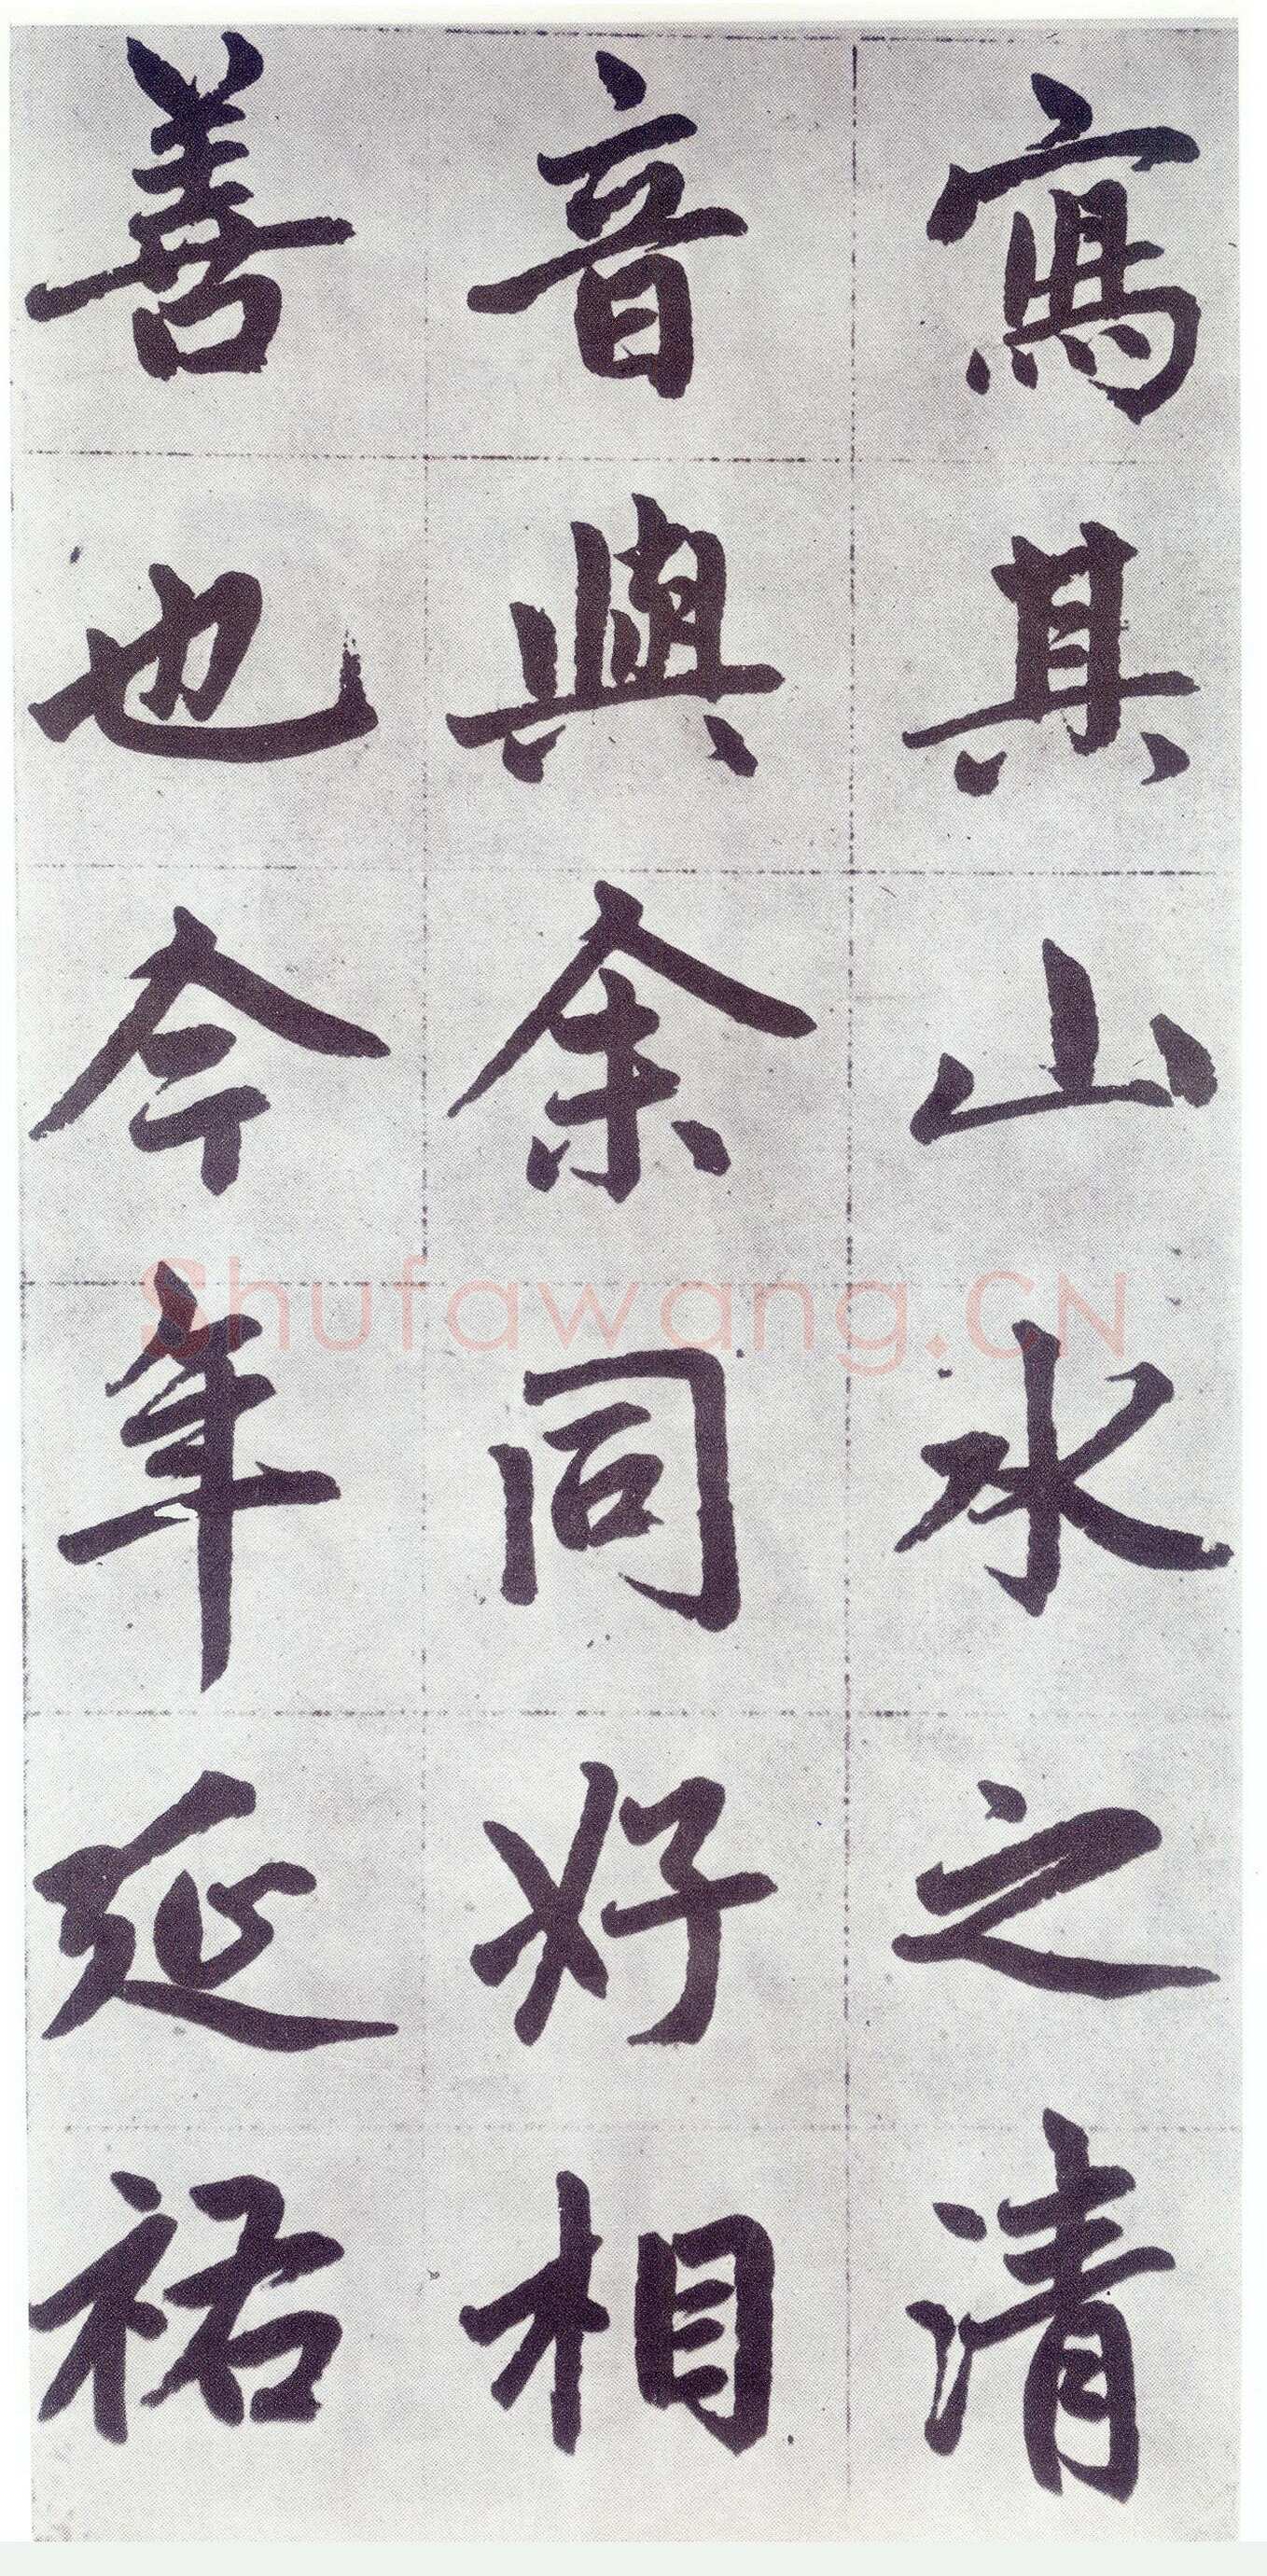 寫其山水之清
音與余同好相
善也今年延祐
Shufawang.CN